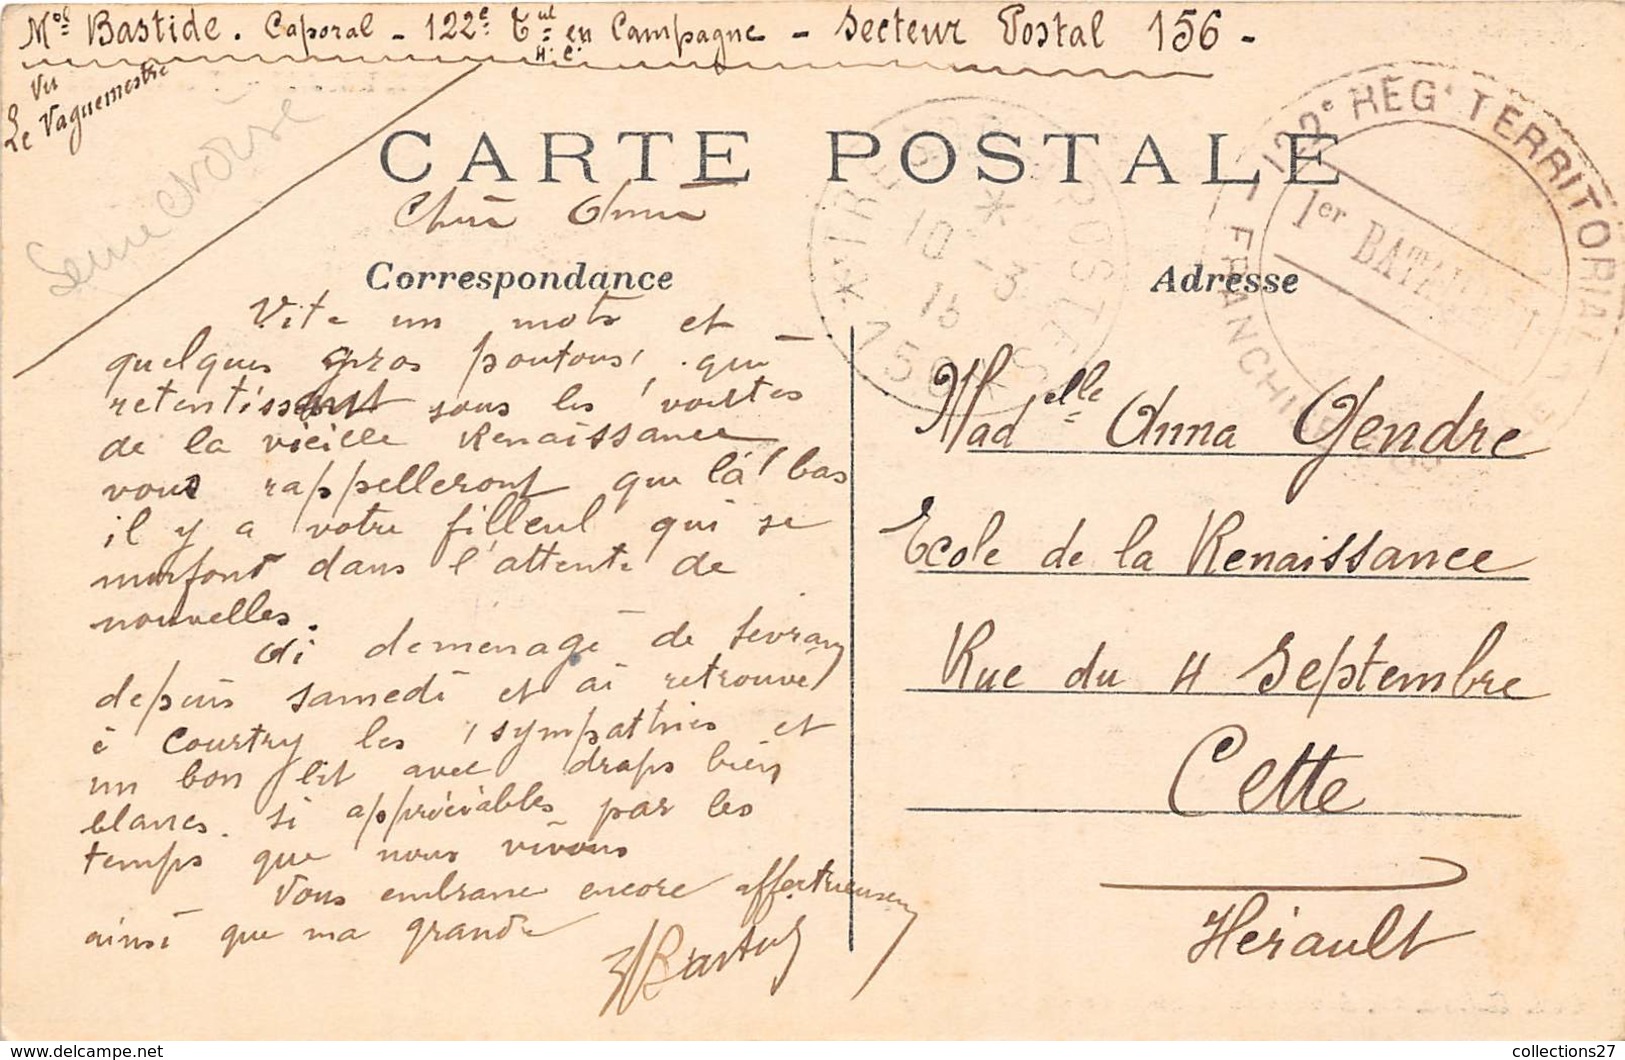 Bastide. Caporal - 122e Tal en Campagne - Secteur Postal 156 -
H. C.
Vu
Le Vaguemestre
CARTE POSTALE
122e REGt TERRITORIAL
1er BATAILLON
FRANCHISE
POSTES
10 - 3
Chère Anna
Correspondance
Adresse
Vite un mots et
quelques gros poutous, qui
retentissant sous les voûtes
de la vieille Renaissance
vous rappelleront que là bas
il y a votre filleul qui se
morfond dans l'attente de
nouvelles.
Ai déménagé de Sevran
depuis samedi et ai retrouvé
à Courtry les sympathies et
un bon lit avec draps bien
blancs. si appréciables par les
temps que nous vivons
Vous embrasse encore affectueusem
ainsi que ma grande
Bastide
Madelle Anna Gendre
Ecole de la Renaissance
Rue du 4 Septembre
Cette
Hérault
collections27